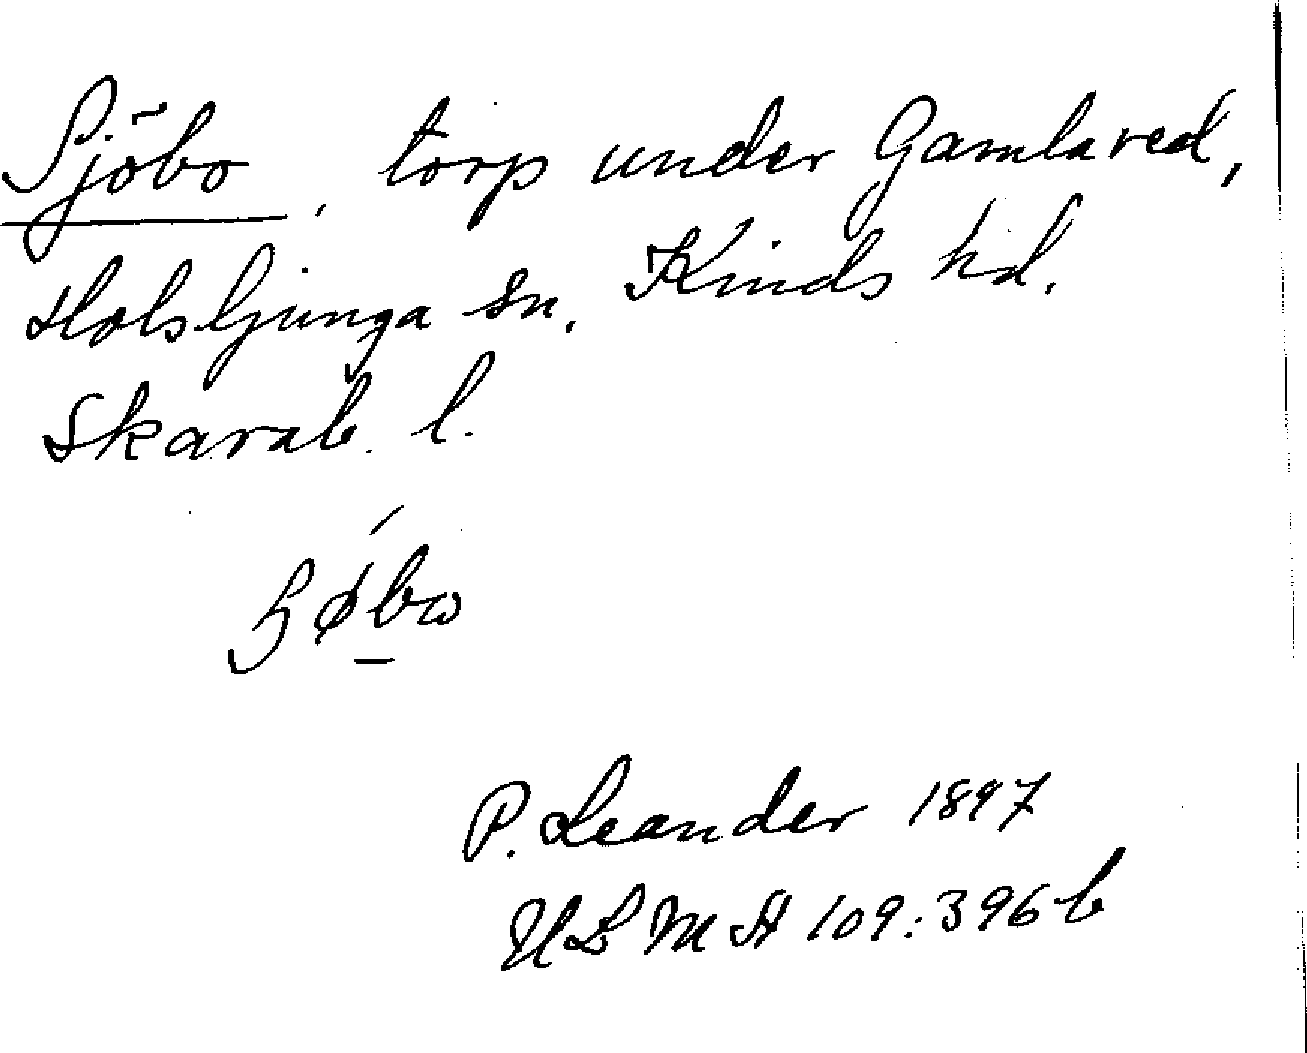 Sjöbo, torp under Gamlared,
Holsljunga sn. Kinds hd.
Skarab. l.
P. Leander 1897
ULMA 109:396 b